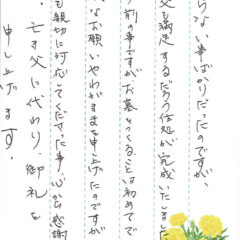 らない事ばかりだったのですが、
父も満足するだろう住処が完成いたしました
前の事ですが、お墓をつくることは初めてで
なお願いやわがままを申し上げたのですが
も親切に対応してくださった事、心から感謝
。亡き父に代わり、御礼を
申し上げます。